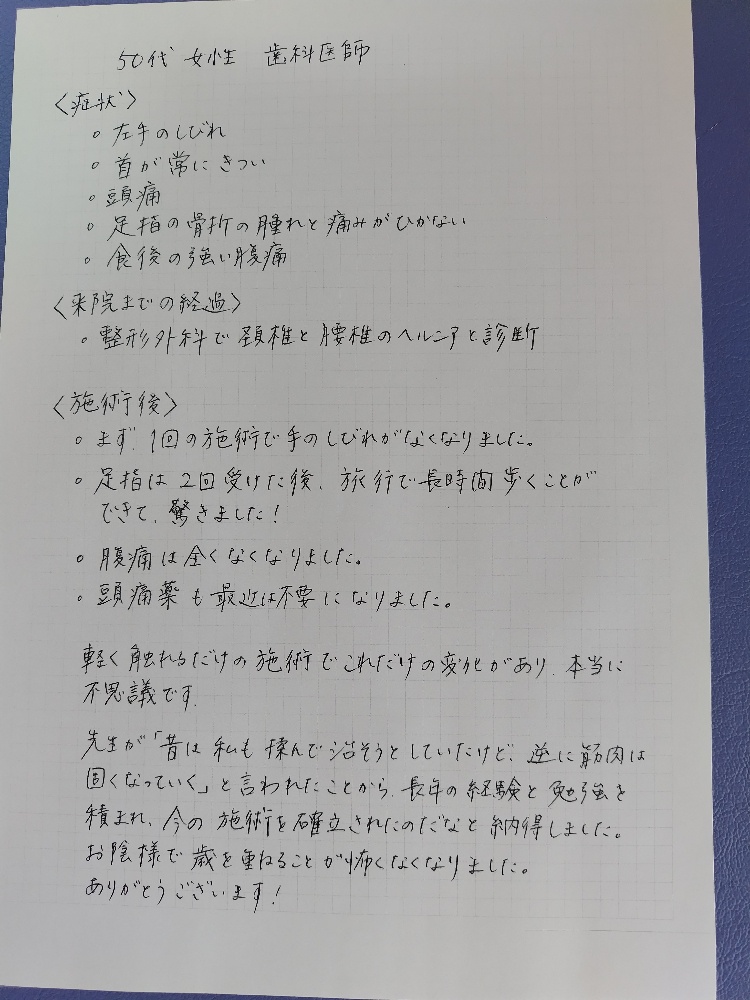 50代 女性 歯科医師
〈症状〉
・左手のしびれ
・首が常にきつい
・頭痛
・足指の骨折の腫れと痛みがひかない
・食後の強い腹痛
〈来院までの経過〉
・整形外科で頚椎と腰椎のヘルニアと診断
〈施術後〉
・まず、1回の施術で手のしびれがなくなりました。
・足指は2回受けた後、旅行で長時間歩くことが
できて、驚きました!
・腹痛は全くなくなりました。
・頭痛薬も最近は不要になりました。
軽く触れるだけの施術でこれだけの変化があり、本当に
不思議です。
先生が「昔は私も揉んで治そうとしていたけど、逆に筋肉は
固くなっていく」と言われたことから、長年の経験と勉強を
積まれ、今の施術を確立されたのだなと納得しました。
お陰様で歳を重ねることが怖くなくなりました。
ありがとうございます!